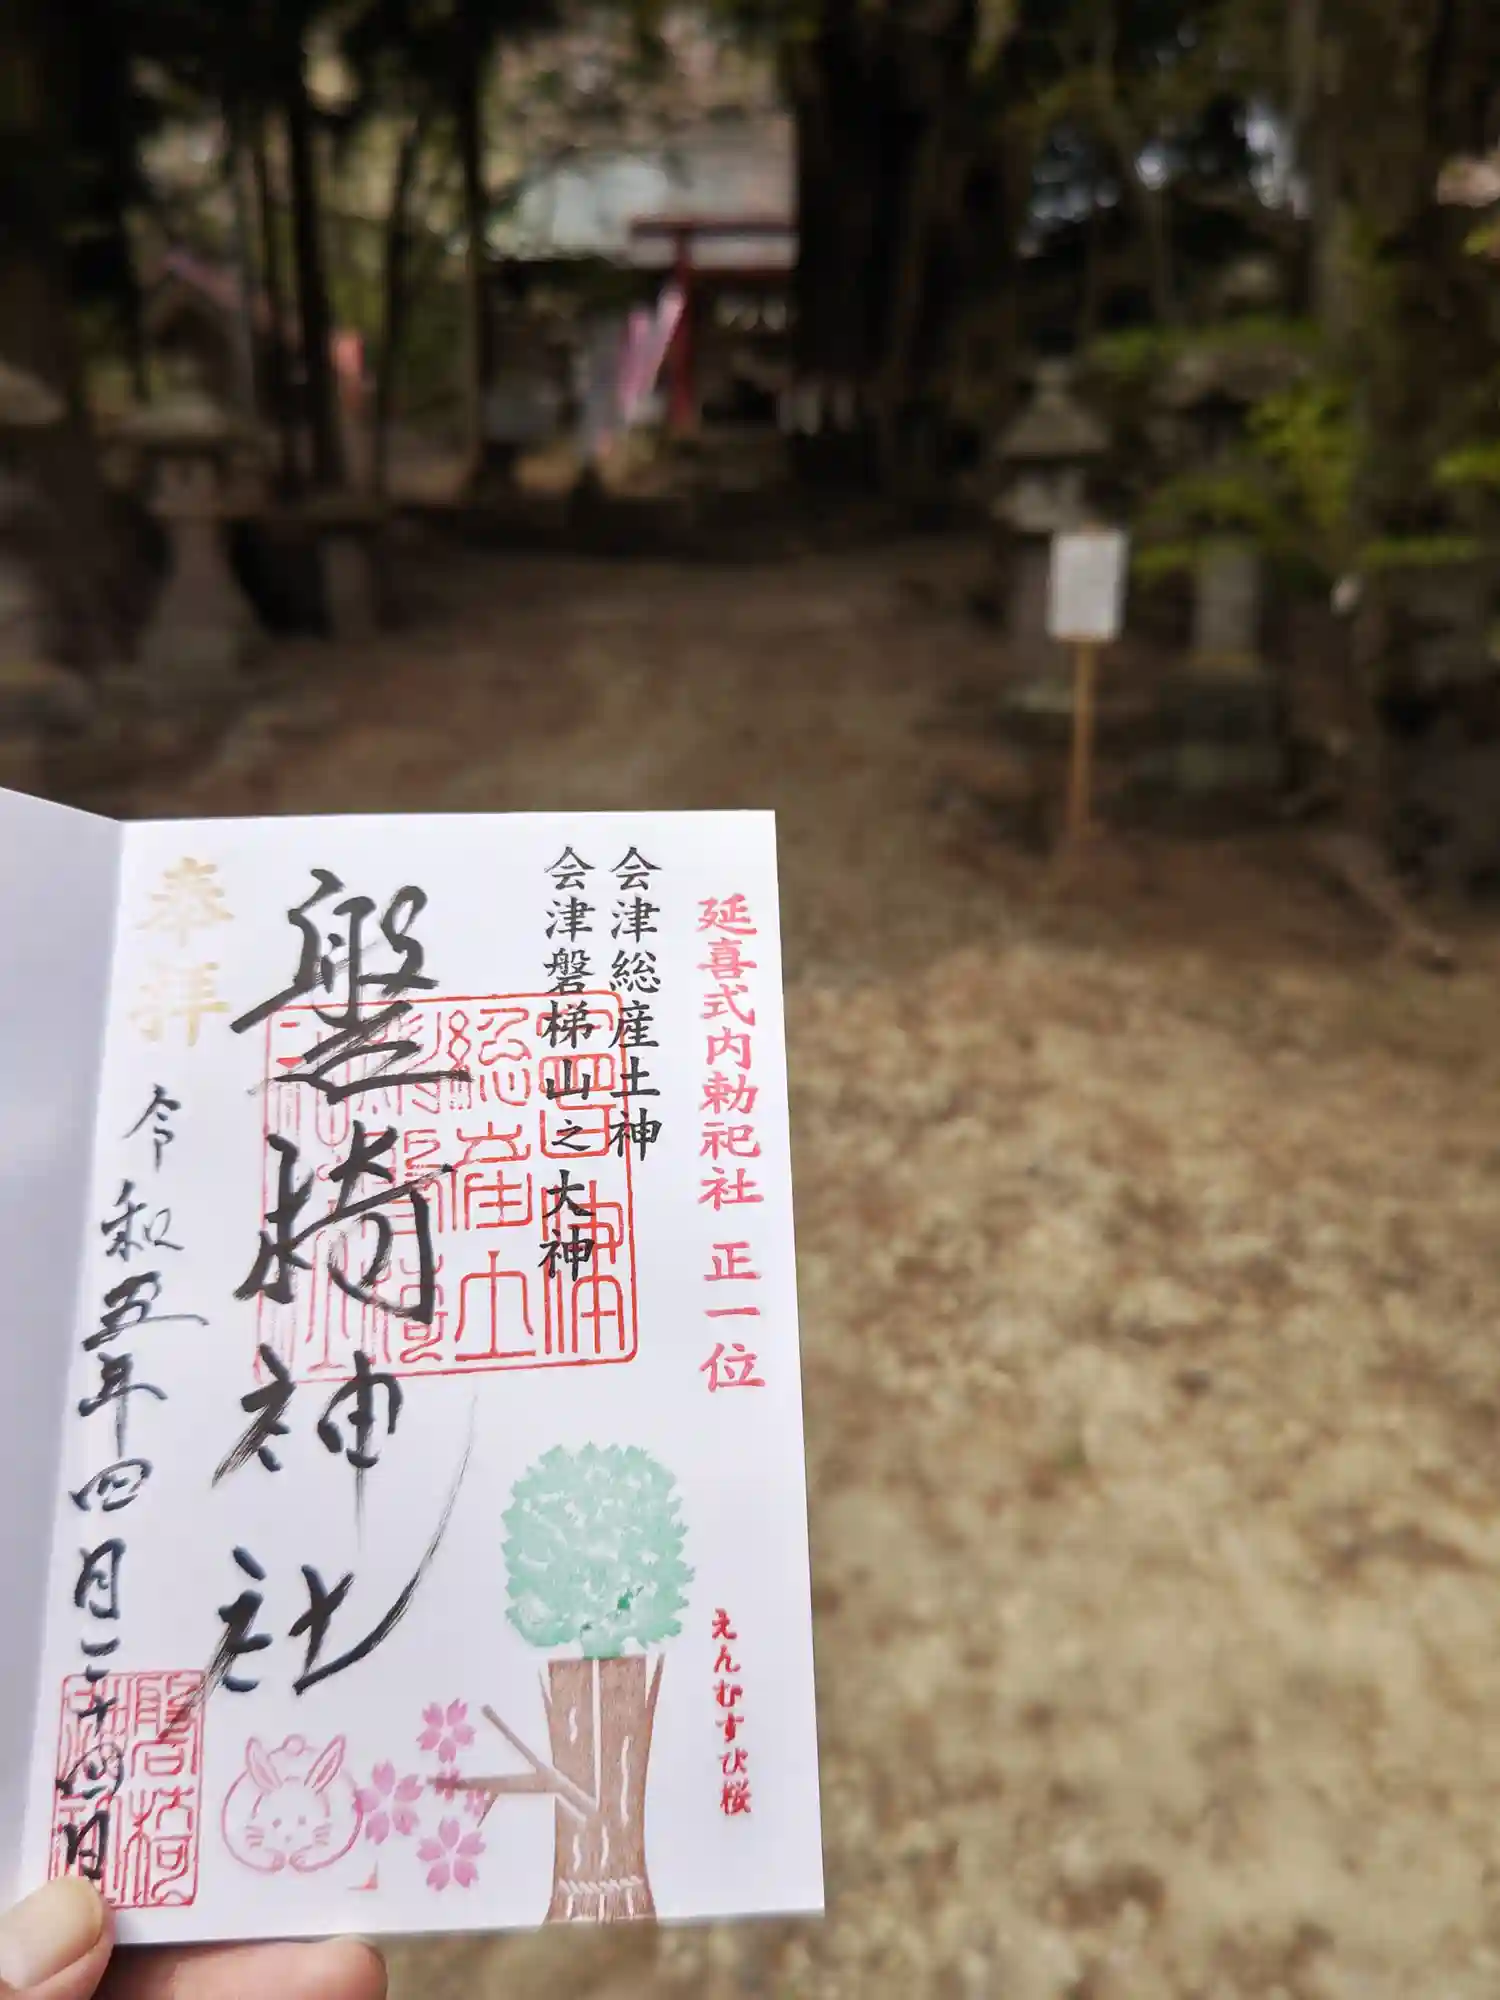 延喜式内勅祀社 正一位
会津総産土神
会津磐梯山之大神
磐椅神社
奉拝
令和五年四月二十四日
えんむすび桜